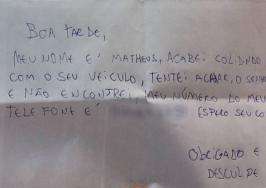 BOA TARDE,
MEU NOME E' MATHEUS, ACABEI COLIDINDO
COM O SEU VEICULO, TENTEI ACHAR, O SENH
E NÃO ENCONTREI, MEU NÚMERO DO MEU
TELEFONE E'
ESPERO SEU CO
OBRIGADO E
DESCULPE